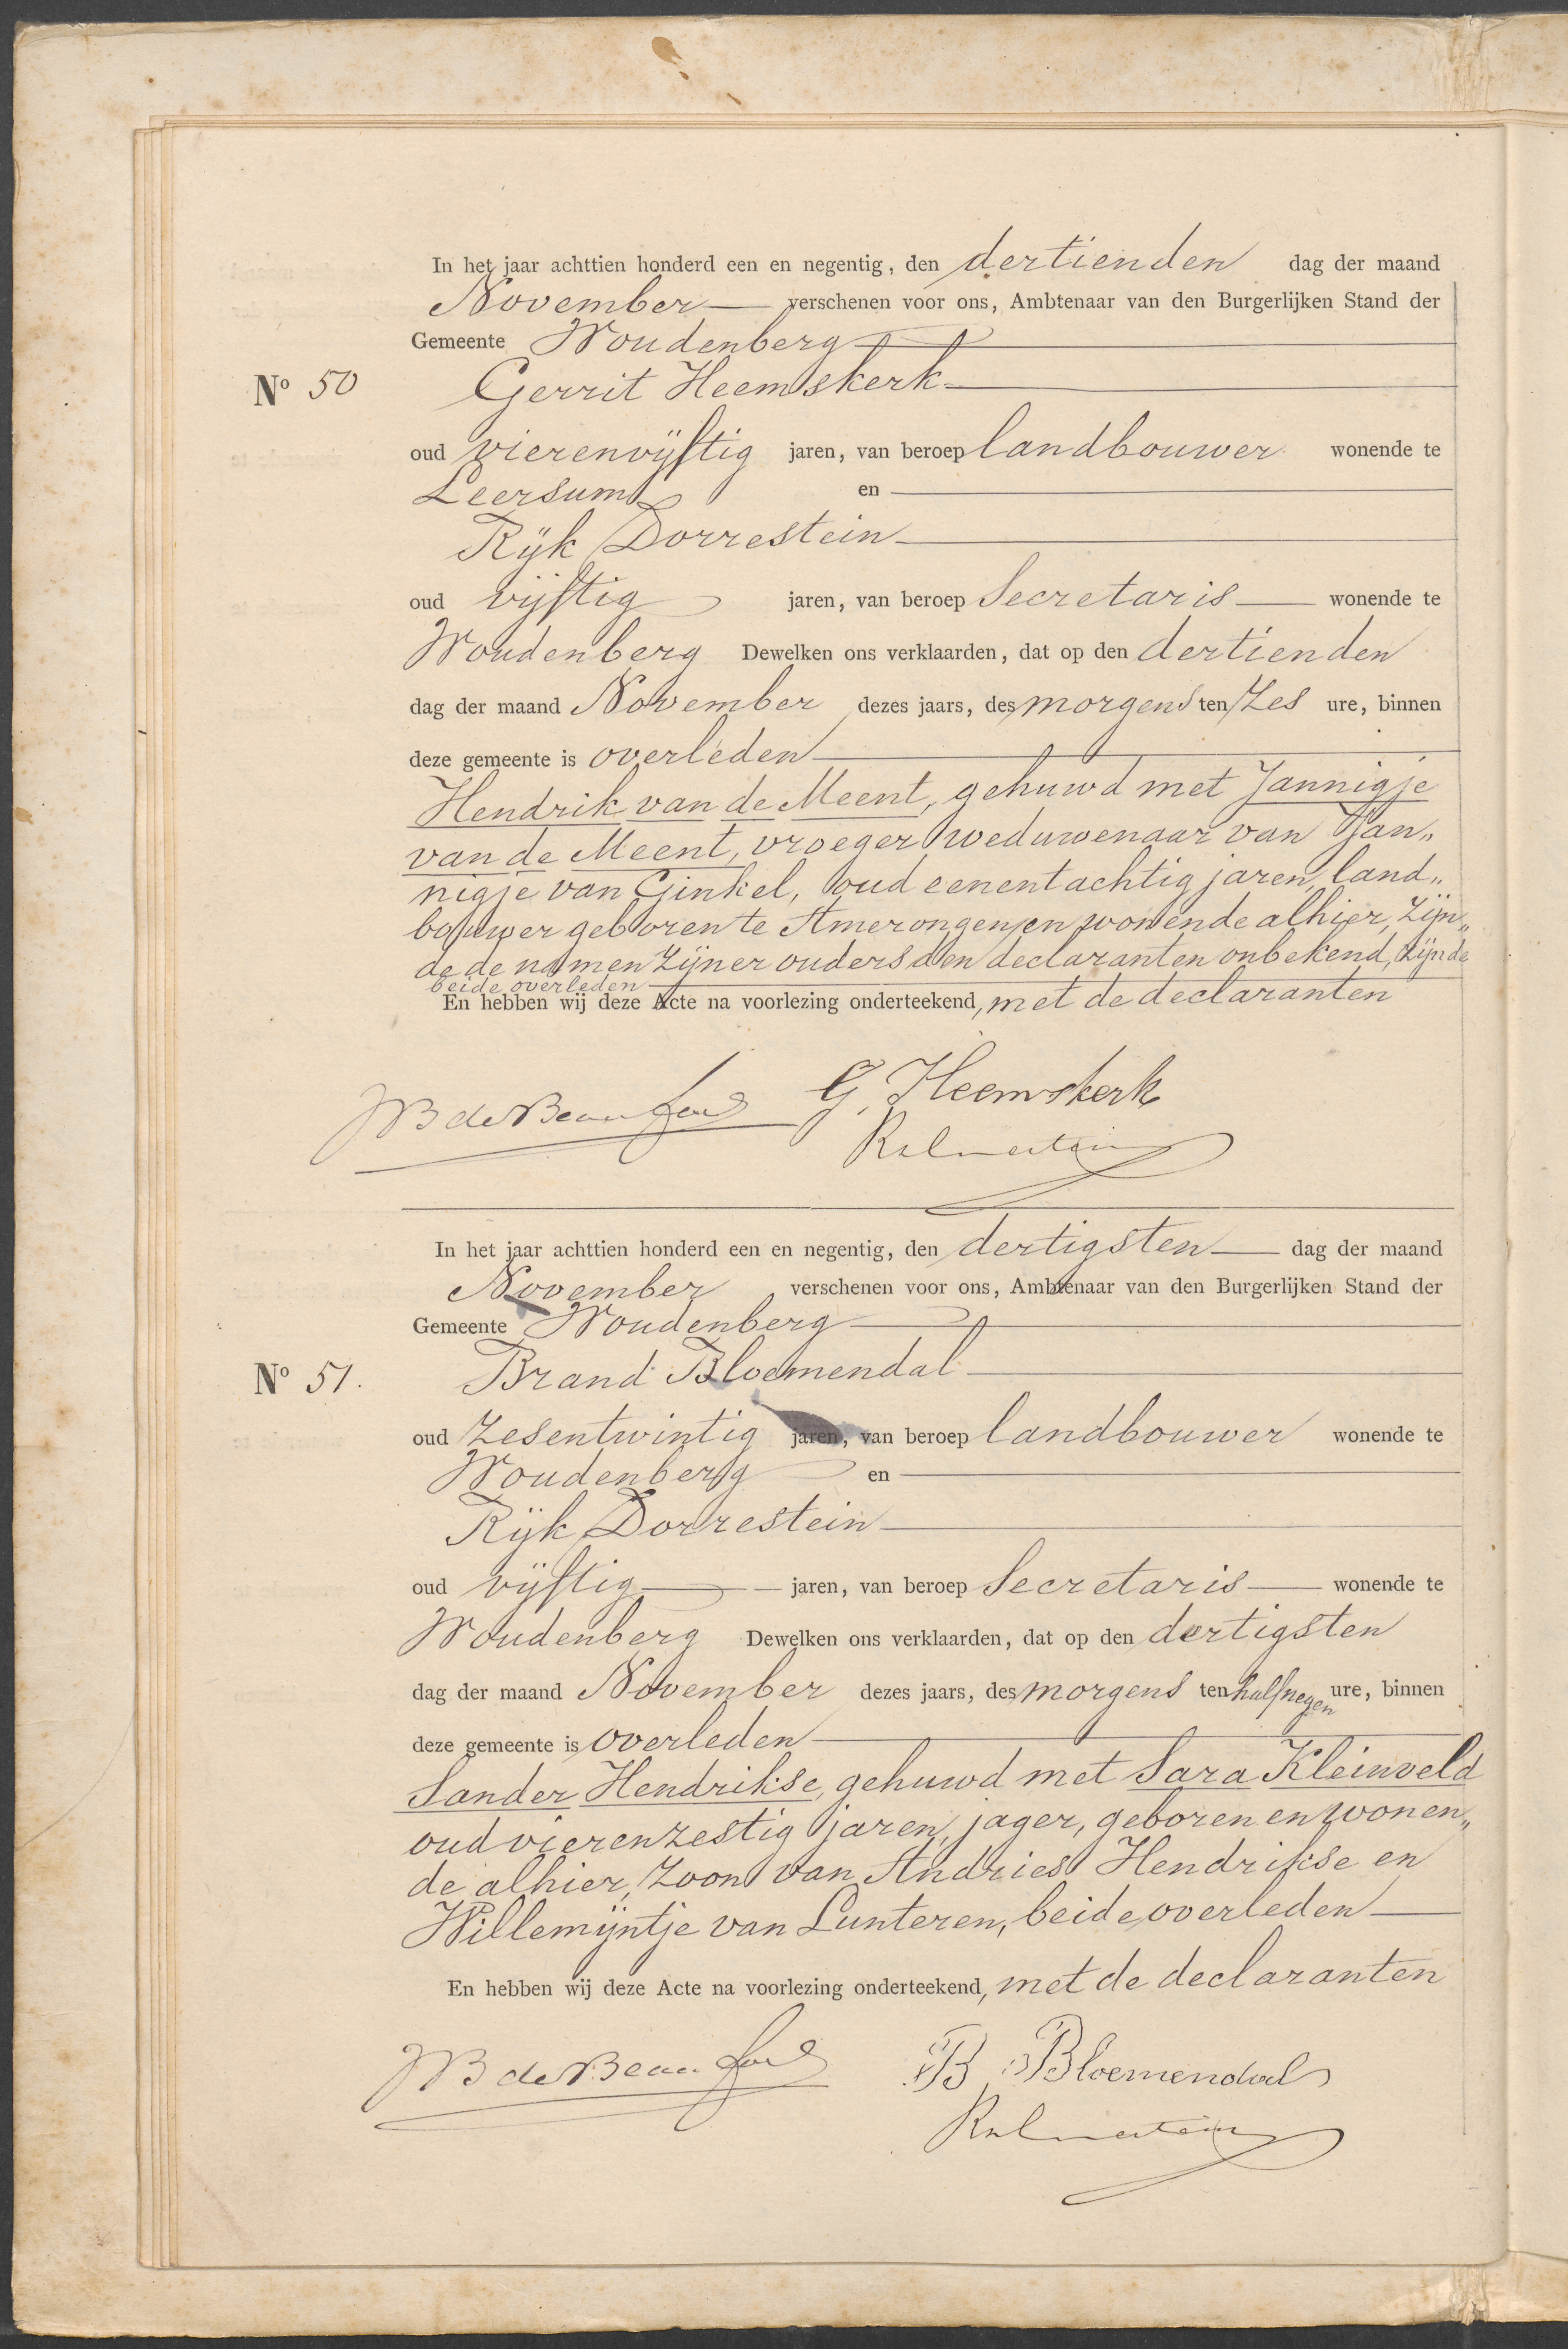 In het jaar achttien honderd een en negentig, den dertienden dag der maand
November verschenen voor ons, Ambtenaar van den Burgerlijken Stand der
Gemeente Woudenberg
No 50 Gerrit Heemskerk
oud vierenvijftig jaren, van beroep landbouwer wonende te
Leersum en
Rijk Dorrestein
oud vijftig jaren, van beroep Secretaris wonende te
Woudenberg Dewelken ons verklaarden, dat op den dertienden
dag der maand November dezes jaars, des morgens ten zes ure, binnen
deze gemeente is overleden
Hendrik van de Meent, gehuwd met Jannigje
van de Meent, vroeger weduwenaar van Jan„
nigje van Ginkel, oud eenentachtig jaren, land„
bouwer geboren te Amerongen en wonende alhier, zijn„
de de namen zijner ouders den declaranten onbekend, zijnde
beide overleden
En hebben wij deze Acte na voorlezing onderteekend, met de declaranten
JB de Beaufort G. Heemskerk
In het jaar achttien honderd een en negentig, den dertigsten dag der maand
November verschenen voor ons, Ambtenaar van den Burgerlijken Stand der
Gemeente Woudenberg
No 51. Brand Bloemendal
oud zesentwintig jaren, van beroep landbouwer wonende te
Woudenberg en
Rijk Dorrestein
oud vijftig jaren, van beroep Secretaris wonende te
Woudenberg Dewelken ons verklaarden, dat op den dertigsten
dag der maand November dezes jaars, des morgens ten halfnegen ure, binnen
deze gemeente is overleden
Sander Hendrikse, gehuwd met Sara Kleinveld
oud vierenzestig jaren, jager, geboren en wonen„
de alhier, zoon van Andries Hendrikse en
Willemijntje van Lunteren, beide overleden
En hebben wij deze Acte na voorlezing onderteekend, met de declaranten
JB de Beaufort B Bloemendal